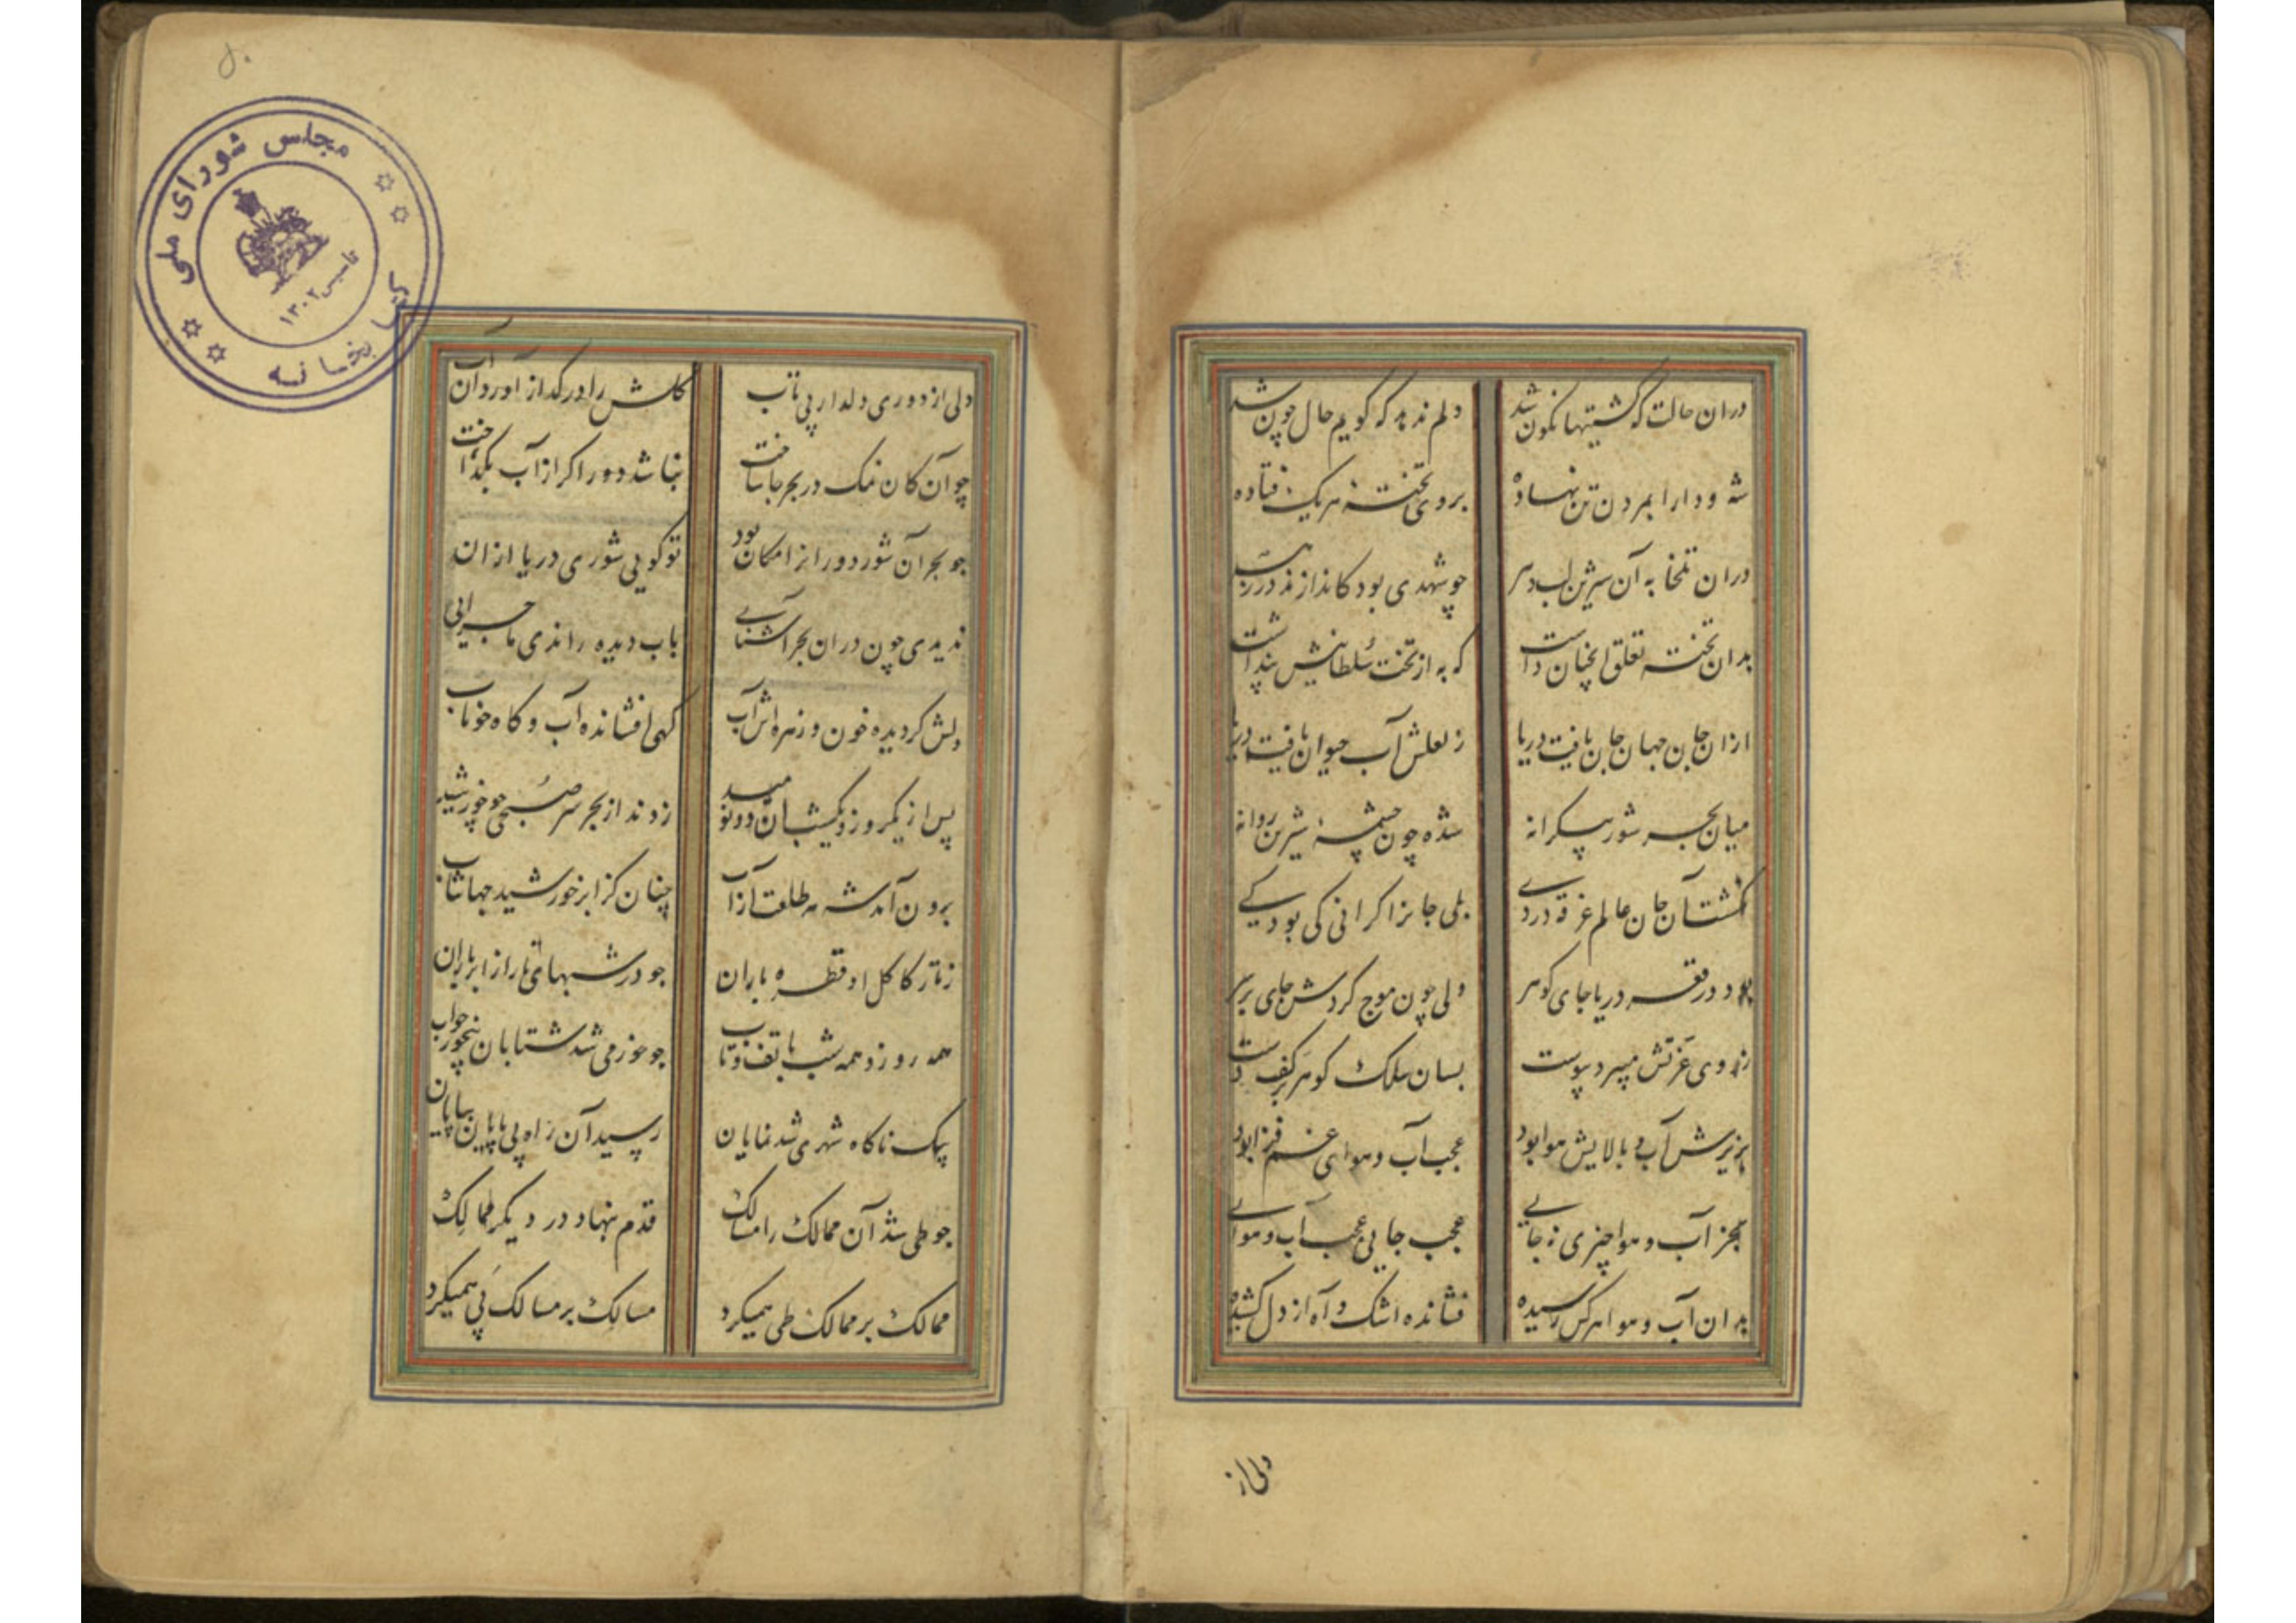 دران حالت که کشتیها نکون شد
دلم ندهد که کویم حال چون شد
شه و دارا بمردن تن نهاده
بروی تختهٔ هریک فتاده
دران تلخابه آن شیرین لب دهر
چو شهدی بود کاندازند در زهر
بدان تخته تعلق انچنان داشت
که به از تخت سلطانیش پنداشت
ازان جان جهان جان یافت دریا
ز لعلش آب حیوان یافت دریا
میان بحر شور بیکرانه
شده چون چشمهٔ شیرین روانه
نکشت آن جان عالم غرقه در وی
بلی جانرا کرانی کی بود کی
بود در قعر دریا جای کوهر
ولی چون موج کردش جای بر سر
ز روی عزتش میبرد پیوست
بسان سلک کوهر بر کف دست
بزیرش آب و بالایش هوا بود
عجب آب و هوای غم فزا بود
بجز آب و هوا چیزی نه جایی
عجب جایی عجب آب و هوایی
بدان آب و هوا هرکس رسیده
فشانده اشک و آه از دل کشیده
دلی از
۵۰
مجلس شورای ملی
کتابخانه
تأسیس ۱۳۰۲
دلی از دوری دلدار بی تاب
کلش را در کداز آورد آن آب
چو آن کان نمک در بحر جا ساخت
نباشد دور اکر از آب بکداخت
چو بحر آن شور دور از امکان بود
تو کویی شوری دریا ازان بود
ندیدی چون دران بحر آشنایی
بآب دیده راندی ماجرایی
دلش کردیده خون و زهره اش آب
کهی افشانده آب و کاه خوناب
پس از یکروز و یکشب آن دو نومید
زدند از بحر سر صبحی چو خورشید
برون آمد شه مه طلعت از آب
چنان کز ابر خورشید جهانتاب
ز تار کاکل او قطره باران
چو در شبهای تار از ابر باران
همه روز و همه شب با تف و تاب
چو خور می شد شتابان بیخور و خواب
یک ناکاه شهری شد نمایان
رسید آن راه بی پایان بپایان
چو طی شد آن ممالک را مسالک
قدم بنهاد در دیکر ممالک
ممالک بر ممالک طی همیکرد
مسالک بر مسالک پی همیکرد